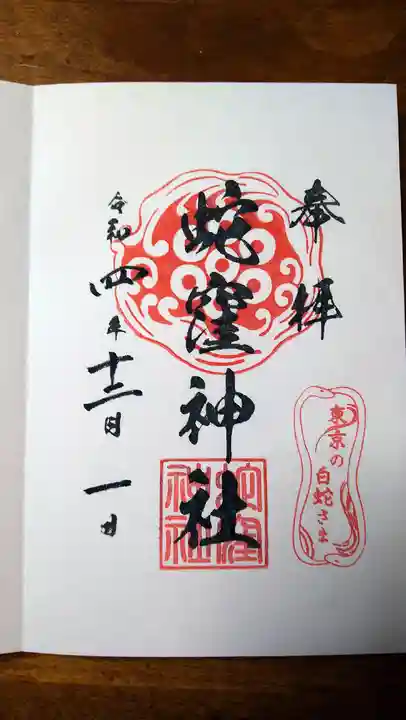 奉拝
東京の白蛇さま
蛇窪神社
蛇窪
神社
令和四年十二月一日